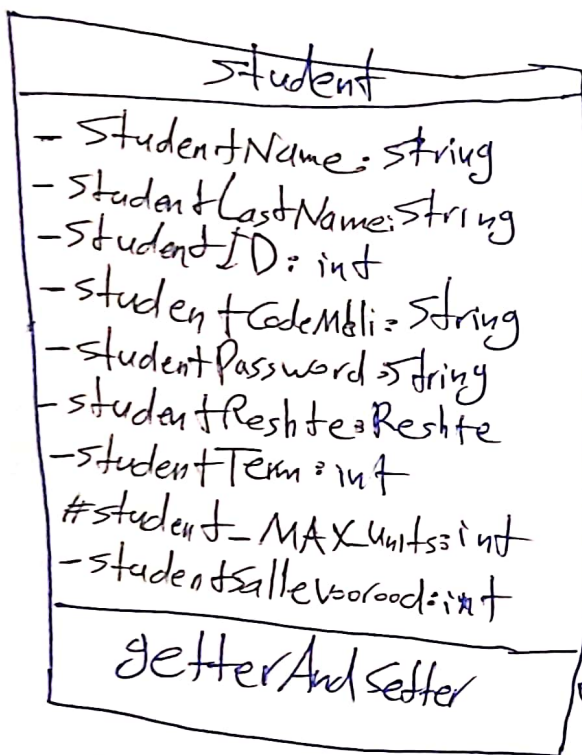 student
- StudentName: string
- StudentLastName: String
- StudentID: int
- studentCodeMeli: String
- studentPassword: String
- studentReshte: Reshte
- studentTerm: int
# student_MAX_Units: int
- studentSalleVoorood: int
getterAndSetter